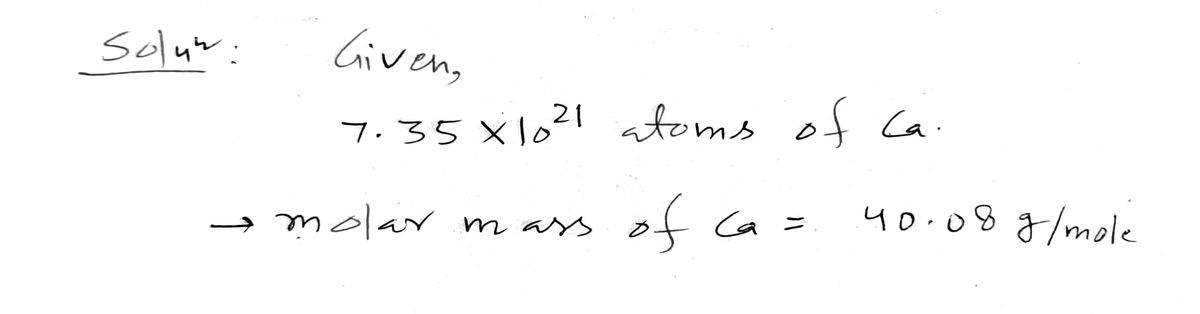 Soluⁿ: Given,
7.35 × 10²¹ atoms of Ca.
→ molar mass of Ca = 40.08 g/mole